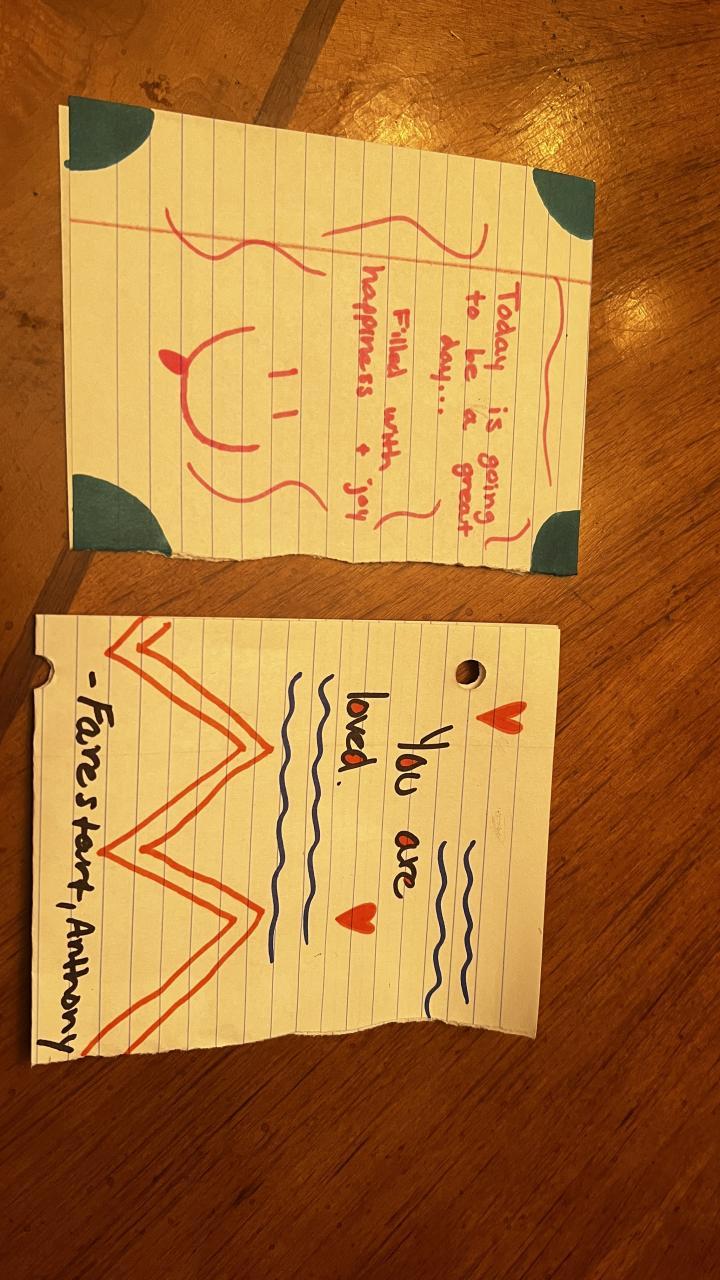 Today is going
to be a great
day...
Filled with
happiness + joy
You are
loved.
-Farestart, Anthony